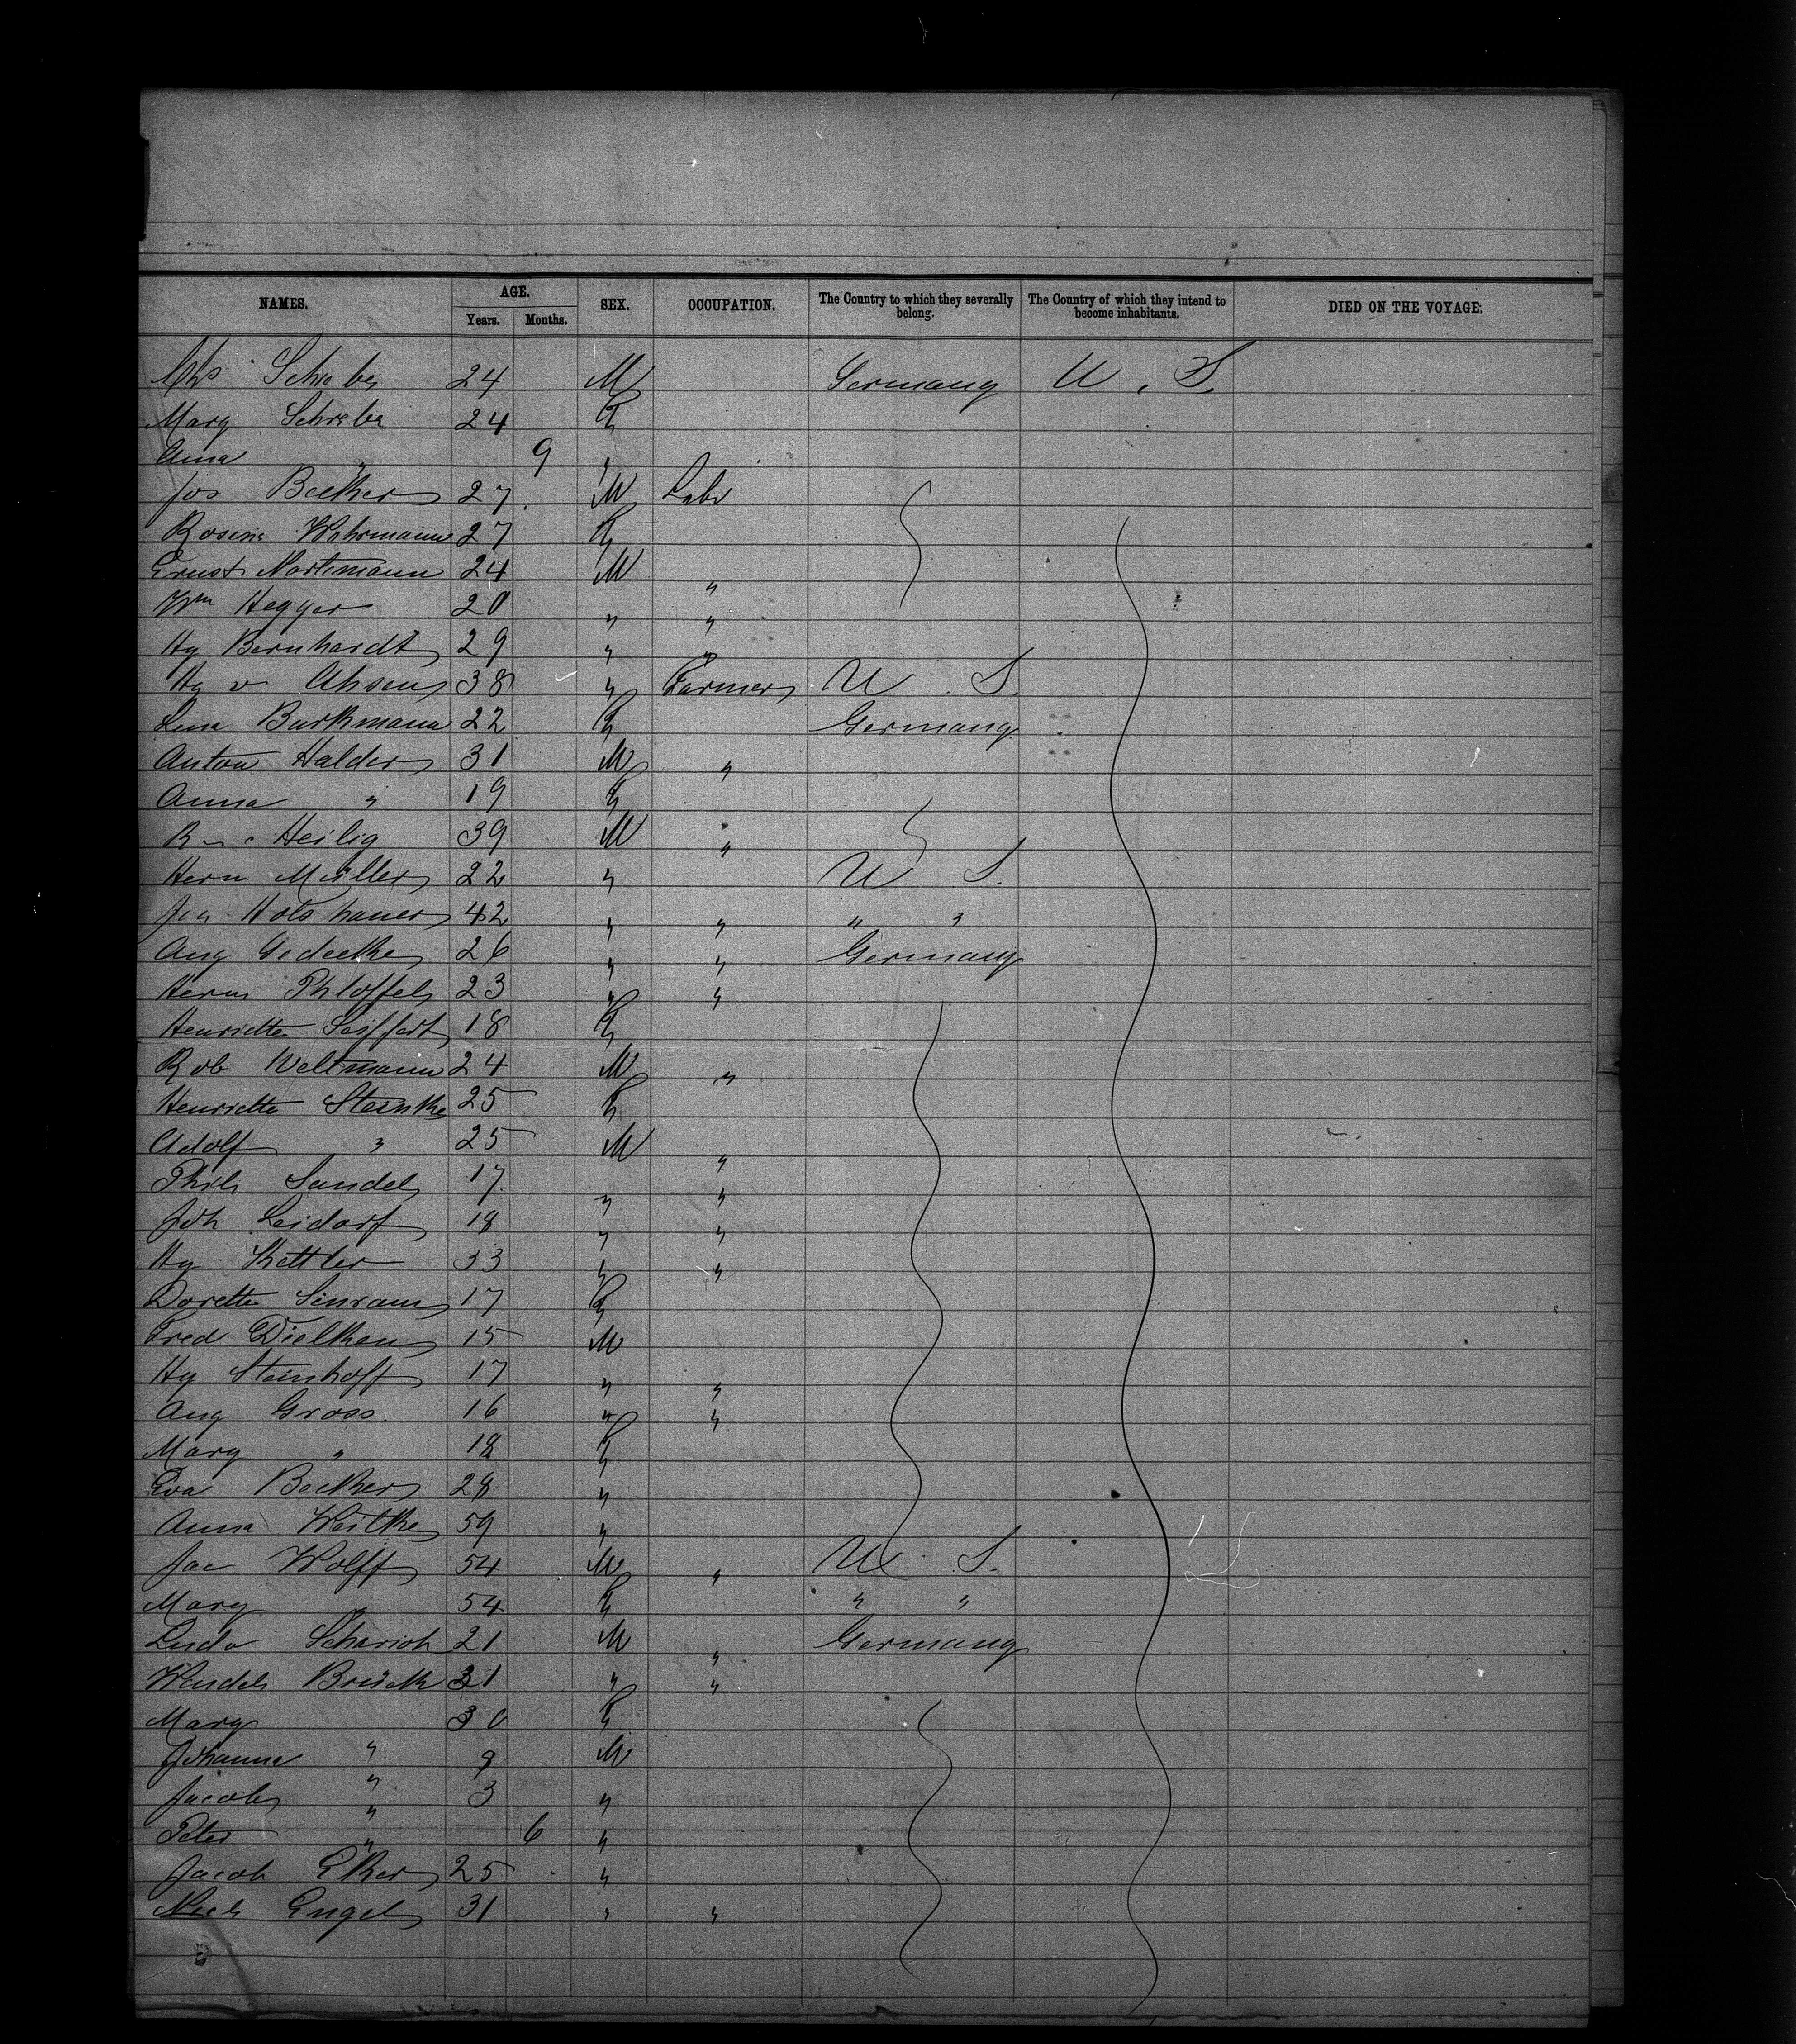 NAMES. AGE. SEX. OCCUPATION. The Country to which they severally belong. The Country of which they intend to become inhabitants. DIED ON THE VOYAGE.
Years. Months.
Chs Schreber 24 M Germany U. S.
Marg Schreber 24 F
Anna " 9 "
Jos Becker 27 M Labr
Rosina Wehrmann 27 F
Ernst Nortmann 24 M "
Wm Hegger 20 " "
Hy Bernhardt 29 " "
Hy v Ahsen 38 " Farmer U. S.
Lena Burkmann 22 F Germany
Anton Halder 31 M "
Anna " 19 F
Heilig 39 M "
Herm Müller 22 " U S.
Holshauer 42 " " " "
Aug Gedecke 26 " " Germany
Herm Phloffel 23 " "
Henriette Seiffert 18 F
Rob Weltmann 24 M "
Henriette Steinke 25 F
Adolf " 25 M "
Phil Sandel 17 " "
Joh Leidorf 18 " "
Hy Kettler 33 " "
Dorette Sinram 17 F
Fred Dielken 15 M
Hy Steinhoff 17 " "
Aug Gross. 16 " "
Marg " 18 F
Eva Becker 28 "
Anna Weitke 59 "
Jac Wolff 54 M " U. S.
Marg " 54 F " "
Ludo Scharioh 21 M " Germany
Wendel Brück 31 " "
Marg 30 F
Johanna " 9 M
Jacob " 3 "
Peter " 6 "
Jacob Eker 25 "
Engel 31 " "